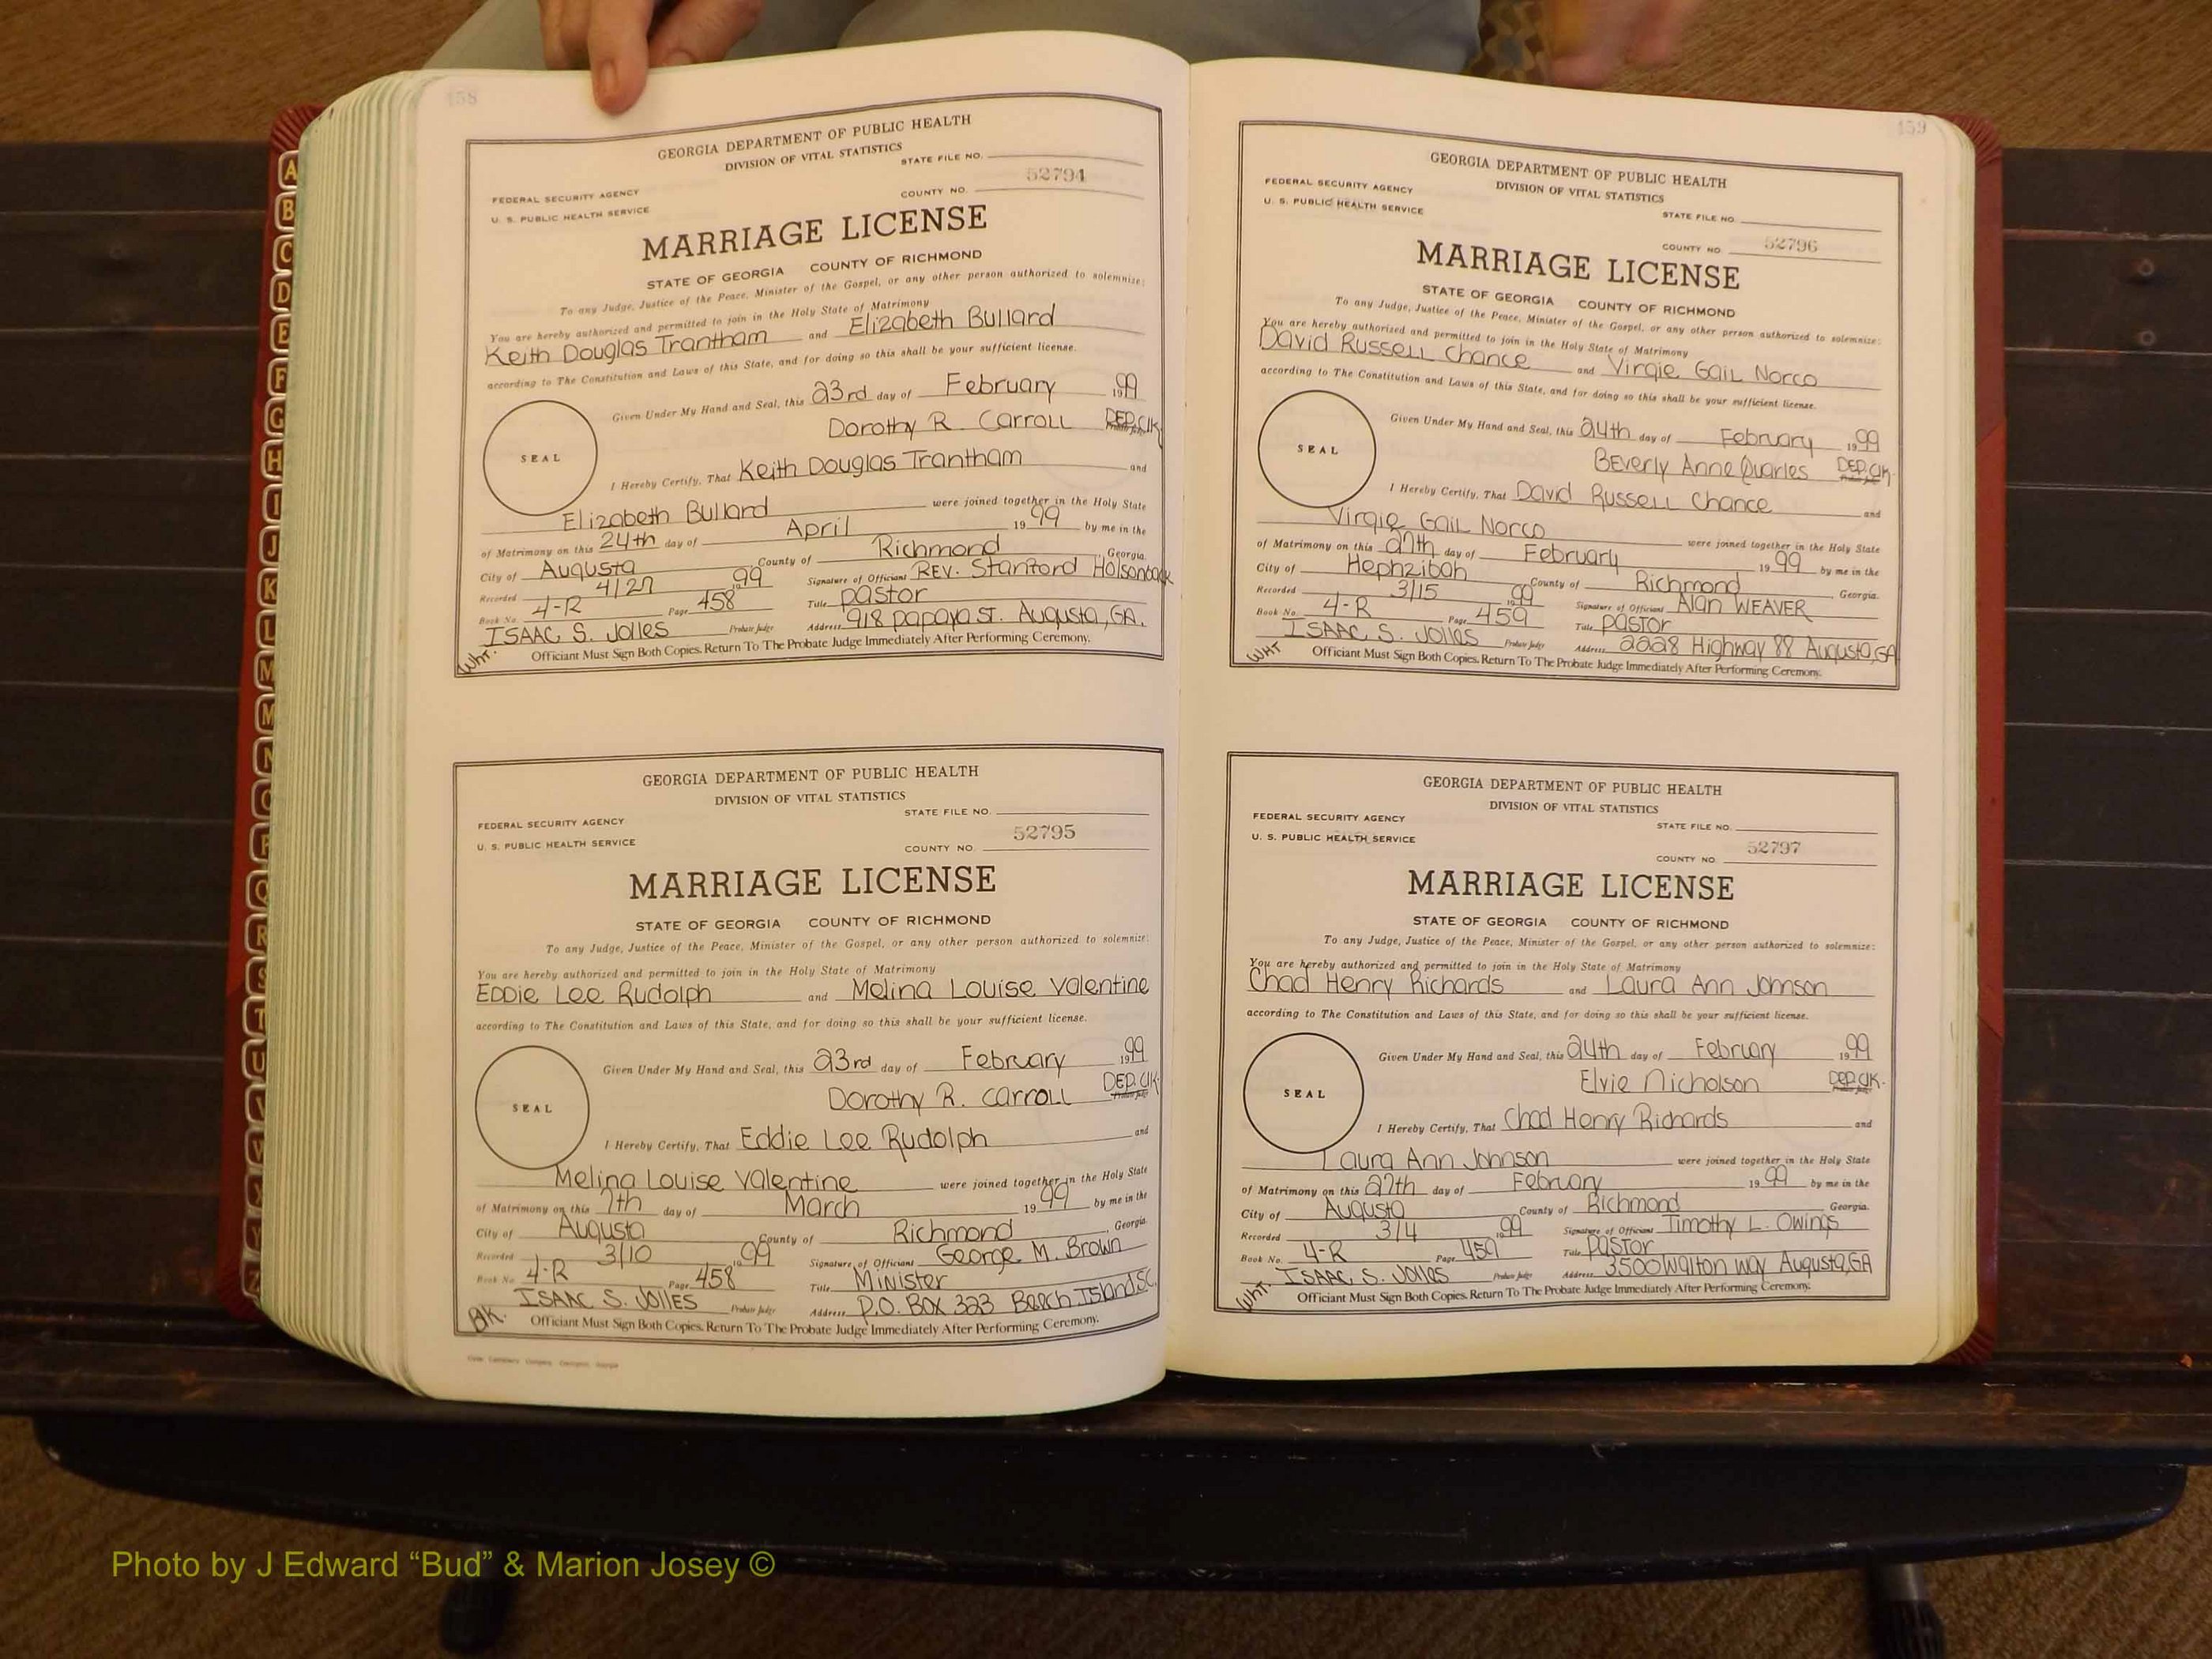 458
GEORGIA DEPARTMENT OF PUBLIC HEALTH
DIVISION OF VITAL STATISTICS
STATE FILE NO.
FEDERAL SECURITY AGENCY
U. S. PUBLIC HEALTH SERVICE
COUNTY NO. 52794
MARRIAGE LICENSE
STATE OF GEORGIA COUNTY OF RICHMOND
To any Judge, Justice of the Peace, Minister of the Gospel, or any other person authorized to solemnize:
You are hereby authorized and permitted to join in the Holy State of Matrimony
Keith Douglas Trantham and Elizabeth Bullard
according to The Constitution and Laws of this State, and for doing so this shall be your sufficient license.
Given Under My Hand and Seal, this 23rd day of February 1999
Dorothy R. Carroll DEP. Clk
SEAL
I Hereby Certify, That Keith Douglas Trantham and
Elizabeth Bullard were joined together in the Holy State
of Matrimony on this 24th day of April 1999 by me in the
City of Augusta County of Richmond Georgia.
Recorded 4/27 1999 Signature of Officiant REV. Stanford Holsonback
Book No. 4-R Page 458 Title pastor
ISAAC S. Jolles Probate Judge Address 918 papaya St. Augusta, GA.
WHT. Officiant Must Sign Both Copies. Return To The Probate Judge Immediately After Performing Ceremony.
GEORGIA DEPARTMENT OF PUBLIC HEALTH
DIVISION OF VITAL STATISTICS
STATE FILE NO.
FEDERAL SECURITY AGENCY
U. S. PUBLIC HEALTH SERVICE
COUNTY NO. 52795
MARRIAGE LICENSE
STATE OF GEORGIA COUNTY OF RICHMOND
To any Judge, Justice of the Peace, Minister of the Gospel, or any other person authorized to solemnize:
You are hereby authorized and permitted to join in the Holy State of Matrimony
Eddie Lee Rudolph and Melina Louise Valentine
according to The Constitution and Laws of this State, and for doing so this shall be your sufficient license.
Given Under My Hand and Seal, this 23rd day of February 1999
Dorothy R. Carroll DEP. Clk.
SEAL
I Hereby Certify, That Eddie Lee Rudolph and
Melina Louise Valentine were joined together in the Holy State
of Matrimony on this 7th day of March 1999 by me in the
City of Augusta County of Richmond, Georgia
Recorded 3/10 1999 Signature of Officiant George M. Brown
Book No. 4-R Page 458 Title Minister
ISAAC S. Jolles Probate Judge Address P.O. Box 323 Beech Island SC.
BK. Officiant Must Sign Both Copies. Return To The Probate Judge Immediately After Performing Ceremony.
459
GEORGIA DEPARTMENT OF PUBLIC HEALTH
DIVISION OF VITAL STATISTICS
FEDERAL SECURITY AGENCY
U. S. PUBLIC HEALTH SERVICE
STATE FILE NO.
COUNTY NO. 52796
MARRIAGE LICENSE
STATE OF GEORGIA COUNTY OF RICHMOND
To any Judge, Justice of the Peace, Minister of the Gospel, or any other person authorized to solemnize:
You are hereby authorized and permitted to join in the Holy State of Matrimony
David Russell Chance and Virgie Gail Norco
according to The Constitution and Laws of this State, and for doing so this shall be your sufficient license.
Given Under My Hand and Seal, this 24th day of February 1999
Beverly Anne Quarles DEP. Clk.
SEAL
I Hereby Certify, That David Russell Chance and
Virgie Gail Norco were joined together in the Holy State
of Matrimony on this 27th day of February 1999 by me in the
City of Hephzibah County of Richmond Georgia.
Recorded 3/15 1999 Signature of Officiant Alan WEAVER
Book No. 4-R Page 459 Title pastor
ISAAC S. Jolles Probate Judge Address 2228 Highway 88 Augusta, GA
WHT Officiant Must Sign Both Copies. Return To The Probate Judge Immediately After Performing Ceremony.
GEORGIA DEPARTMENT OF PUBLIC HEALTH
DIVISION OF VITAL STATISTICS
FEDERAL SECURITY AGENCY
STATE FILE NO.
U. S. PUBLIC HEALTH SERVICE
COUNTY NO. 52797
MARRIAGE LICENSE
STATE OF GEORGIA COUNTY OF RICHMOND
To any Judge, Justice of the Peace, Minister of the Gospel, or any other person authorized to solemnize:
You are hereby authorized and permitted to join in the Holy State of Matrimony
Chad Henry Richards and Laura Ann Johnson
according to The Constitution and Laws of this State, and for doing so this shall be your sufficient license.
Given Under My Hand and Seal, this 24th day of February 1999
Elvie Nicholson DEP. Clk.
SEAL
I Hereby Certify, That Chad Henry Richards and
Laura Ann Johnson were joined together in the Holy State
of Matrimony on this 27th day of February 1999 by me in the
City of Augusta County of Richmond Georgia.
Recorded 3/4 1999 Signature of Officiant Timothy L. Owings
Book No. 4-R Page 459 Title pastor
ISAAC S. Jolles Probate Judge Address 3500 Walton Way Augusta, GA
WHT. Officiant Must Sign Both Copies. Return To The Probate Judge Immediately After Performing Ceremony.
A
B
C
D
E
F
G
H
I
J
K
L
M
Mc
N
O
P
Q
R
S
T
U
V
W
X
Y
Z
Photo by J Edward “Bud” & Marion Josey ©